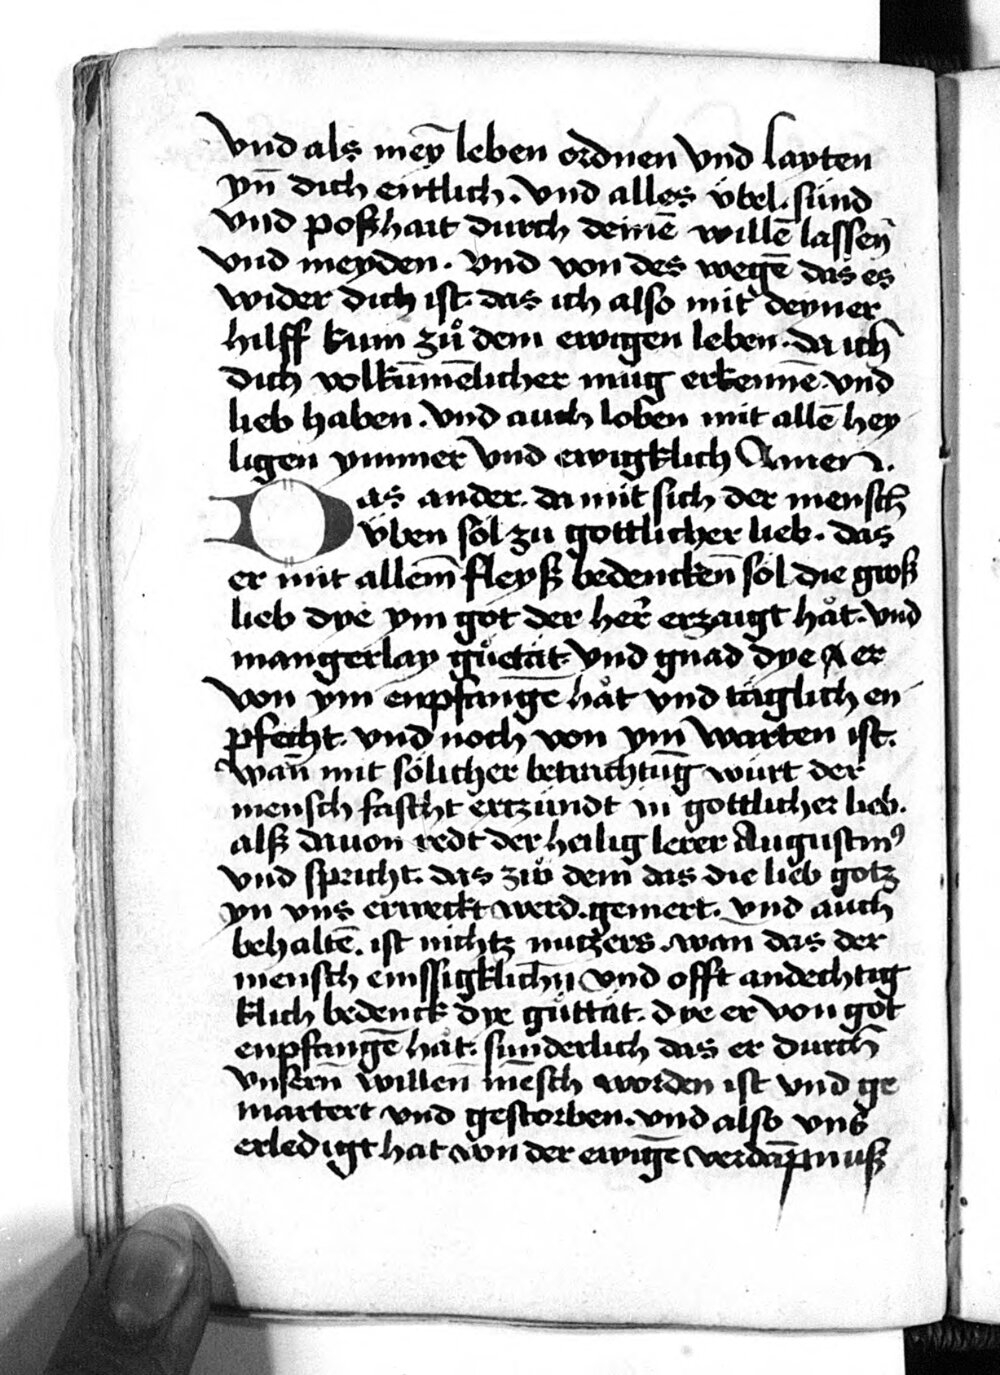 vnd als meȳ leben ordnen vnd layten
yn̄ dich entlich. vnd alles v̈bel. sünd
vnd poßhait durch deinē willē lassen̄
vnd meyden. vnd von des wegē das es
wider dich ist. das ich also mit deyner
hilff kum zů dem ewigen leben. da ich
dich volkūmēlicher mug erkennē. vnd
lieb haben. vnd auch loben mit allē hey
ligen ymmer vnd ewigklich Amen.
Das ander. da mit sich der mensch
v̈ben sol zu gottlicher lieb. das
er mit allem̄ fleyß bedencken̄ sol die groß
lieb dye ym got der her̄ erzaigt hat. vnd
mangerlay gůetät. vnd gnad dye er
von ym enpfangē hat vnd täglich en
pfecht. vnd noch von ym warten ist.
wan̄ mit sölicher betrachtūg würt der
mensch fascht ertzündt in gottlicher lieb.
alß dauon redt der heilig lerer Augustinꝰ
vnd spricht. das zů dem das die lieb gotz
yn vns erweckt werd. gemert. vnd auch
behaltē. ist nichtz nutzers. wan̄ das der
mensch emssigklichn̄ vnd offt andechtig
klich bedenck dye gůttät. dye er von got
enpfangē hat. sunderlich das er durch
vnsern̄ willen̄ mēsch worden ist vnd ge
martert vnd gestorben. vnd also vns
erledigt hat von der ewigē verdāptnuß